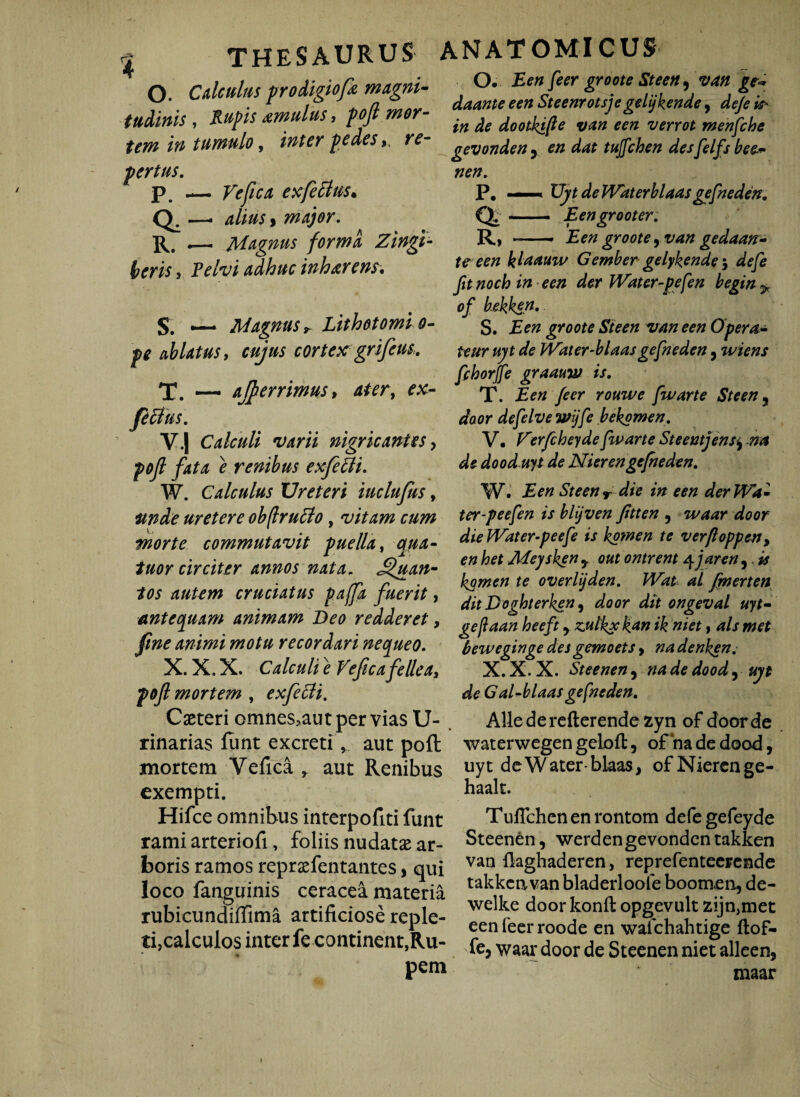 4 THESAURUS ANATOMICUS
O. Calculus prodigiosæ magni-
tudinis, Rupis æmulus, post mor-
tem in tumulo, inter pedes, re-
pertus.
P. — Vesica exsectus.
Q. — alius, major.
R. — Magnus formâ Zingi-
beris, Pelvi adhuc inhærens.
S. — Magnus, Lithotomi o-
pe ablatus, cujus cortex griseus.
T. — asperrimus, ater, ex-
sectus.
V.] Calculi varii nigricantes,
post fata è renibus exsecti.
W. Calculus Ureteri iuclusus,
unde uretere obstructo, vitam cum
morte commutavit puella, qua-
tuor circiter annos nata. Quan-
tos autem cruciatus passa fuerit,
antequam animam Deo redderet,
sine animi motu recordari nequeo.
X. X. X. Calculi è Vesica fellea,
post mortem, exsecti.
Cæteri omnes, aut per vias U-
rinarias sunt excreti, aut post
mortem Vesicâ, aut Renibus
exempti.
Hisce omnibus interpositi sunt
rami arteriosi, foliis nudatæ ar-
boris ramos repræsentantes, qui
loco sanguinis ceraceâ materiâ
rubicundissimâ artificiosè reple-
ti, calculos inter se continent, Ru-
pem
O. Een seer groote Steen, van ge-
daante een Steenrotsje gelijkende, dese is
in de dootkiste van een verrot mensche
gevonden, en dat tusschen des selfs bee-
nen.
P. — Uyt de Waterblaas gesneden.
Q. — Een grooter.
R, — Een groote, van gedaan-
te een klaauw Gember gelykende; dese
sit noch in een der Water-pesen begin,
of bekken.
S. Een groote Steen van een Opera-
teur uyt de Water-blaas gesneden, wiens
schorsse graauw is.
T. Een seer rouwe swarte Steen,
door deselve wijse bekomen.
V. Verscheyde swarte Steentjens, na
de dood uyt de Nieren gesneden.
W. Een Steen, die in een der Wa-
ter-peesen is blijven sitten, waar door
die Water-peese is komen te verstoppen,
en het Meysken, out ontrent 4 jaren, is
komen te overlijden. Wat al smerten
dit Doghterken, door dit ongeval uyt-
gestaan heeft, zulkx kan ik niet, als met
beweginge des gemoets, na denken.
X. X. X. Steenen, na de dood, uyt
de Gal-blaas gesneden.
Alle de resterende zyn of door de
waterwegen gelost, of na de dood,
uyt de Water-blaas, of Nieren ge-
haalt.
Tusschen en rontom dese geseyde
Steenên, werden gevonden takken
van slaghaderen, representeerende
takken van bladerloose boomen, de-
welke door konst opgevult zijn, met
een seer roode en waschahtige stof-
fe, waar door de Steenen niet alleen,
maar